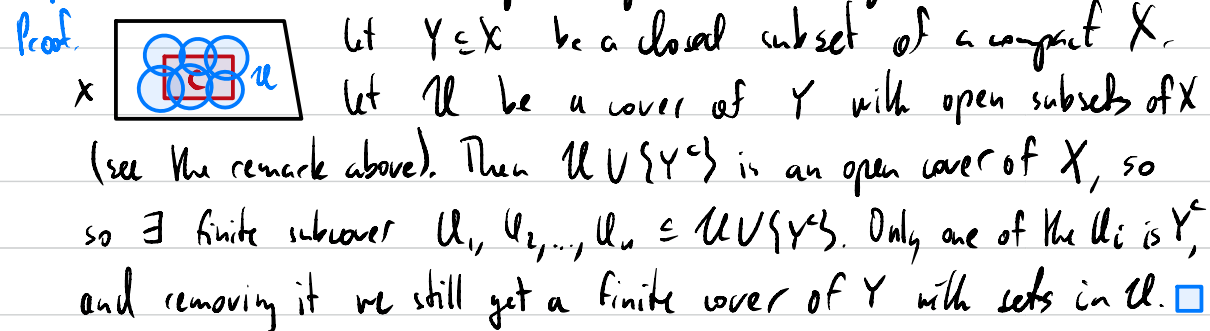 Proof. Let Y ⊆ X be a closed subset of a compact X.
X C 𝒰 Let 𝒰 be a cover of Y with open subsets of X
(see the remark above). Then 𝒰 ∪ {Yᶜ} is an open cover of X, so
so ∃ finite subcover U₁, U₂, ..., Uₙ ⊆ 𝒰 ∪ {Yᶜ}. Only one of the Uᵢ is Yᶜ,
and removing it we still get a finite cover of Y with sets in 𝒰. □